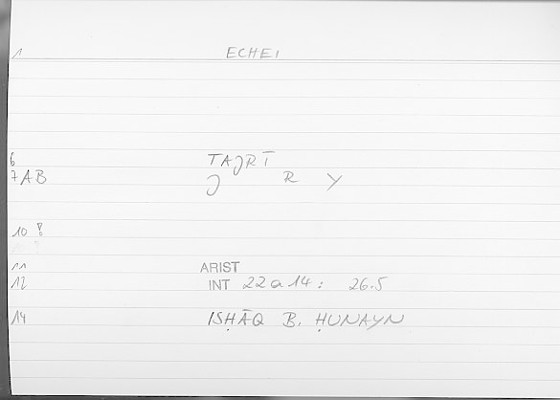 1 ECHEI
6 TAJRĪ
7AB J R Y
10 8
11 ARIST
12 INT 22 a 14 : 26.5
14 ISḤĀQ B. ḤUNAYN